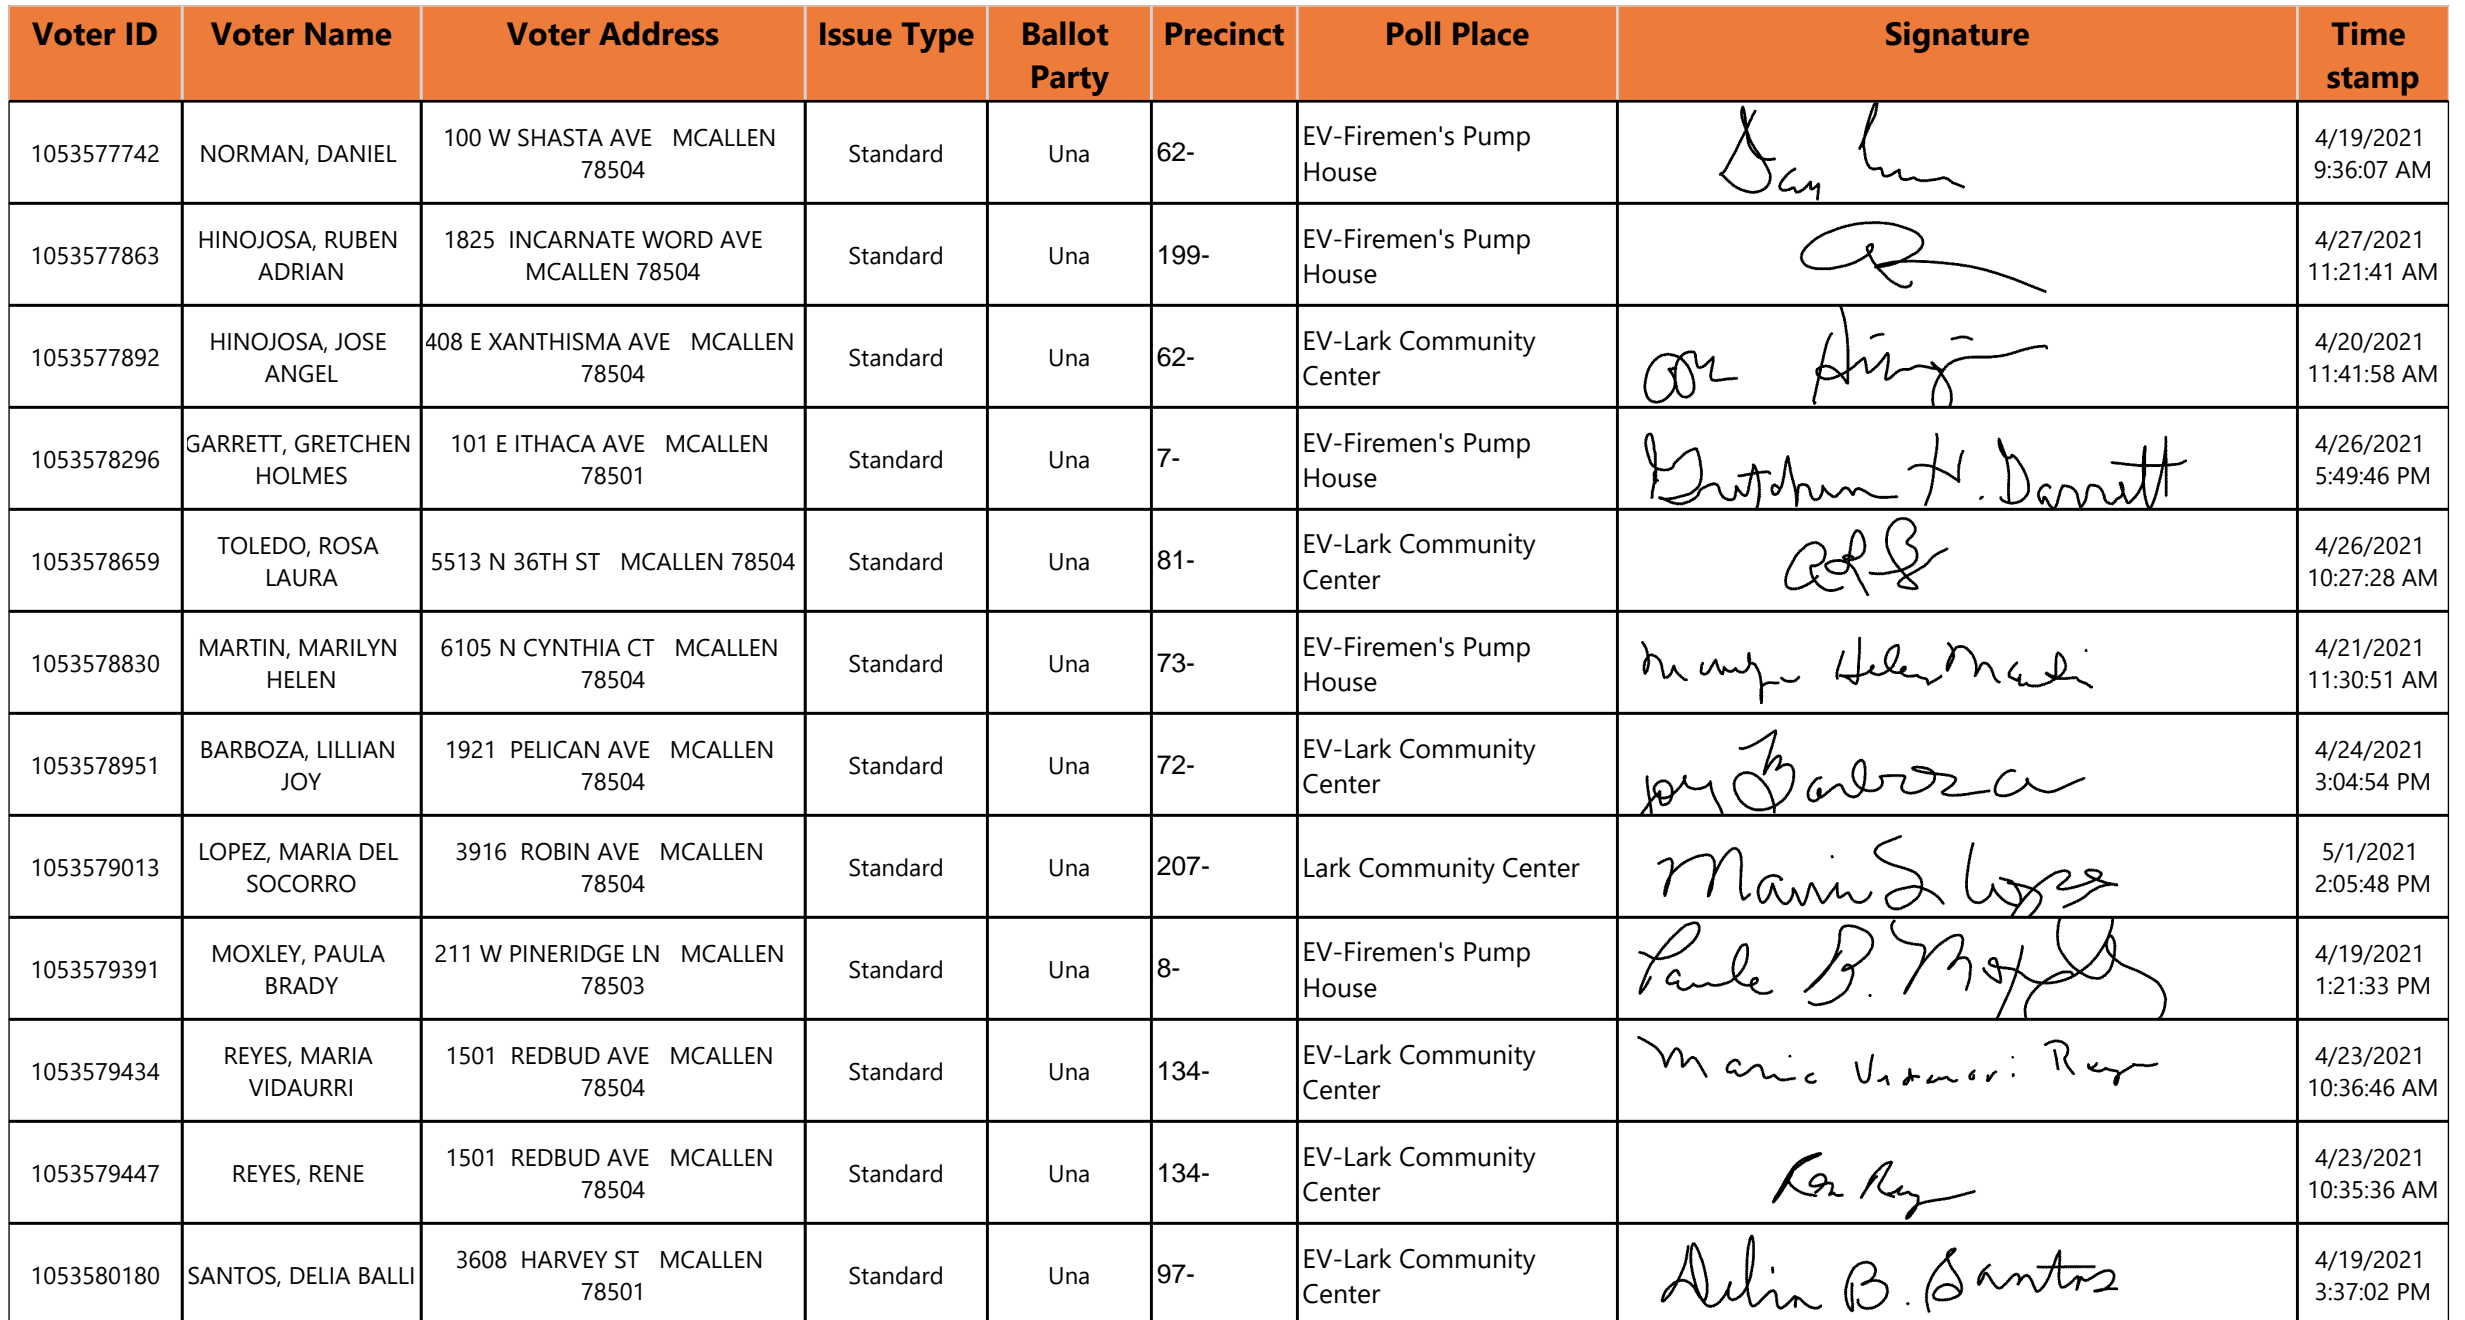 Voter ID Voter Name Voter Address Issue Type Ballot Party Precinct Poll Place Signature Time stamp
1053577742 NORMAN, DANIEL 100 W SHASTA AVE MCALLEN 78504 Standard Una 62- EV-Firemen's Pump House 4/19/2021 9:36:07 AM
1053577863 HINOJOSA, RUBEN ADRIAN 1825 INCARNATE WORD AVE MCALLEN 78504 Standard Una 199- EV-Firemen's Pump House 4/27/2021 11:21:41 AM
1053577892 HINOJOSA, JOSE ANGEL 408 E XANTHISMA AVE MCALLEN 78504 Standard Una 62- EV-Lark Community Center 4/20/2021 11:41:58 AM
1053578296 GARRETT, GRETCHEN HOLMES 101 E ITHACA AVE MCALLEN 78501 Standard Una 7- EV-Firemen's Pump House Gretchen H. Garrett 4/26/2021 5:49:46 PM
1053578659 TOLEDO, ROSA LAURA 5513 N 36TH ST MCALLEN 78504 Standard Una 81- EV-Lark Community Center 4/26/2021 10:27:28 AM
1053578830 MARTIN, MARILYN HELEN 6105 N CYNTHIA CT MCALLEN 78504 Standard Una 73- EV-Firemen's Pump House Helen Martin 4/21/2021 11:30:51 AM
1053578951 BARBOZA, LILLIAN JOY 1921 PELICAN AVE MCALLEN 78504 Standard Una 72- EV-Lark Community Center Joy Barboza 4/24/2021 3:04:54 PM
1053579013 LOPEZ, MARIA DEL SOCORRO 3916 ROBIN AVE MCALLEN 78504 Standard Una 207- Lark Community Center Maria S Lopez 5/1/2021 2:05:48 PM
1053579391 MOXLEY, PAULA BRADY 211 W PINERIDGE LN MCALLEN 78503 Standard Una 8- EV-Firemen's Pump House Paula B. Moxley 4/19/2021 1:21:33 PM
1053579434 REYES, MARIA VIDAURRI 1501 REDBUD AVE MCALLEN 78504 Standard Una 134- EV-Lark Community Center Maria Vidaurri Reyes 4/23/2021 10:36:46 AM
1053579447 REYES, RENE 1501 REDBUD AVE MCALLEN 78504 Standard Una 134- EV-Lark Community Center 4/23/2021 10:35:36 AM
1053580180 SANTOS, DELIA BALLI 3608 HARVEY ST MCALLEN 78501 Standard Una 97- EV-Lark Community Center Delia B. Santos 4/19/2021 3:37:02 PM